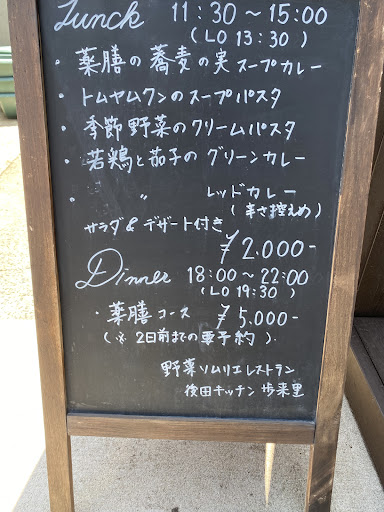 Lunch 11:30～15:00
(LO 13:30)
・薬膳の蕎麦の実スープカレー
・トムヤムクンのスープパスタ
・季節野菜のクリームパスタ
・若鶏と茄子のグリーンカレー
・ 〃 〃 レッドカレー
(辛さ控えめ)
サラダ&デザート付き
¥2.000-
Dinner 18:00～22:00
(LO 19:30)
・薬膳コース ¥5.000-
(※2日前までの要予約)
野菜ソムリエレストラン
後田キッチン 歩来里